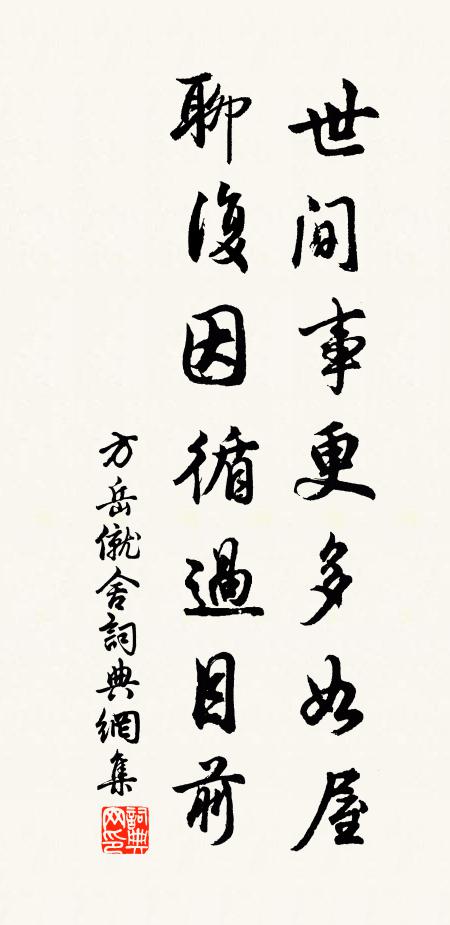 世间事更多如屋
聊復因循過目前
方岳僦舍詞典網集
詞典网印